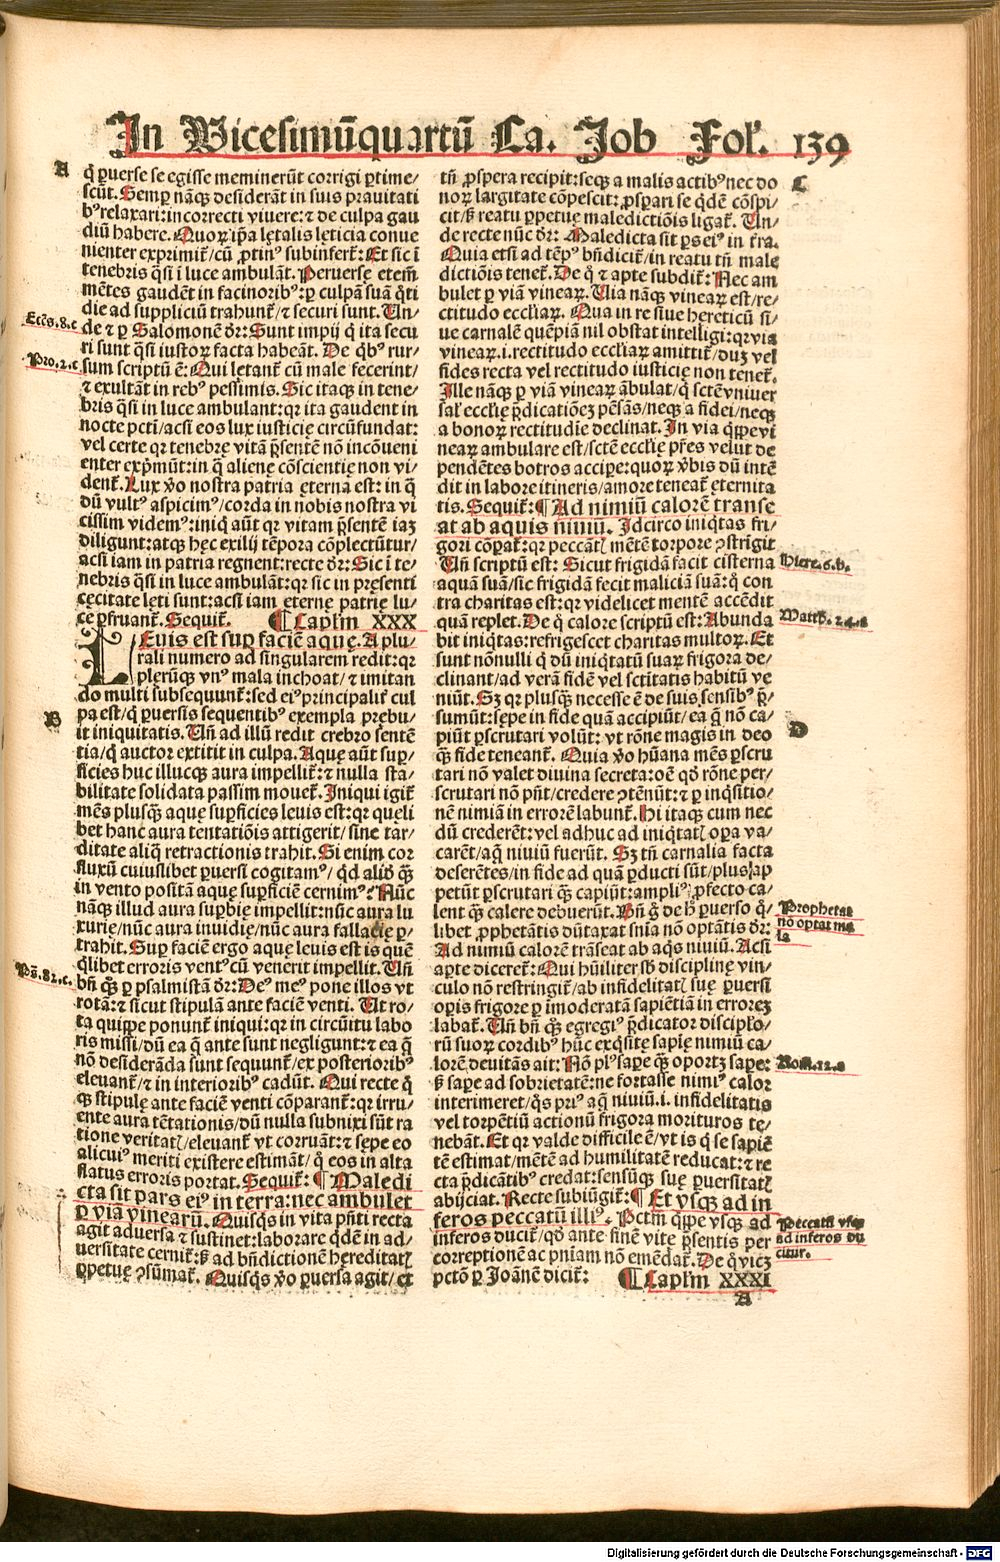 In Vicesimūquartū Ca. Job Fol'. 139
A
q̄ ꝑuerse se egisse meminerūt corrigi ꝑtime/
scūt. Semꝑ nāqꝫ desiderāt in suis prauitati
bꝰ relaxari: incorrecti viuere: ⁊ de culpa gau
diū habere. Quoꝝ ip̄a lętalis lęticia conue
nienter exprimit᷑/cū ꝓtinꝰ subinfert᷑: Et sic ī
tenebris q̄si ī luce ambulāt. Peruerse etem̄
mētes gaudēt in facinoribꝰ: ꝑ culpā suā q̇ti
die ad suppliciū trahunt᷑/⁊ securi sunt. Un/
de ⁊ ꝑ Salomonē d̄r: Sunt impij q̇ ita secu
ri sunt q̄si iustoꝝ facta habeāt. De q̇bꝰ rur/
sum scriptū ē: Qui lętant᷑ cū male fecerint/
⁊ exultāt in rebꝰ pessimis. Sic itaqꝫ in tene/
bris q̄si in luce ambulant: qꝛ ita gaudent in
nocte pctī/acsi eos lux iusticię circūfundat:
vel certe qꝛ tenebrę vitā p̄sentē nō incōueni
enter exp̄mūt: in q̄ alienę cōscientię non vi/
dent᷑. Lux v̄o nostra patria ęterna est: in q̄
dū vultꝰ aspicimꝰ/corda in nobis nostra vi
cissim videmꝰ: iniq̇ aūt qꝛ vitam p̄sentē iaꝫ
diligunt: atqꝫ hęc exilij tēpora cōplectūtur/
acsi iam in patria regnent: recte d̄r: Sic ī te/
nebris q̄si in luce ambulāt: qꝛ sic in pręsenti
cęcitate lęti sunt: acsi iam ęternę patrię lu/
ce ꝑfruant᷑. Sequit᷑. ¶ Capl'm XXX
LEuis est suꝑ faciē aquę. A plu/
rali numero ad singularem redit: qꝛ
plerūqꝫ vnꝰ mala inchoat/⁊ imitan
do multi subsequunt᷑: sed eiꝰ principalit᷑ cul
B
pa est/q̇ ꝑuersis sequentibꝰ exempla prębu/
it iniquitatis. Uñ ad illū redit crebro sentē
tia/q̇ auctor extitit in culpa. Aquę aūt suꝑ/
ficies huc illucqꝫ aura impellit᷑: ⁊ nulla sta/
bilitate solidata passim mouet᷑. Iniqui igit᷑
mēs plusq̄ꝫ aquę suꝑficies leuis est: qꝛ quęli
bet hanc aura tentatiōis attigerit/sine tar/
ditate aliq̄ retractionis trahit. Si enim cor
fluxū cuiuslibet ꝑuersi cogitamꝰ/q̇d aliō q̄ꝫ
in vento positā aquę suꝑficiē cernimꝰ? Nūc
nāqꝫ illud aura suꝑbię impellit: nūc aura lu
xurię/nūc aura inuidię/nūc aura fallacię ꝑ/
trahit. Suꝑ faciē ergo aquę leuis est is quē
q̇libet erroris ventꝰ cū venerit impellit. Uñ
bñ q̄ꝫ ꝑ psalmistā d̄r: Deꝰ meꝰ pone illos vt
rotā: ⁊ sicut stipulā ante faciē venti. Ut ro/
ta quippe ponunt᷑ iniqui: qꝛ in circūitu labo
ris missi/dū ea q̄ ante sunt negligunt: ⁊ ea q̄
nō desiderāda sunt sequunt᷑/ex posterioribꝰ
eleuant᷑/⁊ in interioribꝰ cadūt. Qui recte q̄
qꝫ stipulę ante faciē venti cōparant᷑: qꝛ irru/
ente aura tētationis/dū nulla subnixi sūt ra
tione veritatꝭ/eleuant᷑ vt corruāt: ⁊ sępe eo
alicuiꝰ meriti existere estimāt/q̇ eos in alta
flatus erroris portat. Sequit᷑: ¶ Maledi
cta sit pars eiꝰ in terra: nec ambulet
ꝑ viā vinearū. Quisq̇s in vita p̄nti recta
agit aduersa ⁊ sustinet: laborare q̇dē in ad/
uersitate cernit᷑: sꝫ ad bñdictionē hęreditatꝭ
ꝑpetuę ꝯsūmat᷑. Quisq̇s v̄o ꝑuersa agit/et
Eccs. 8. c
Pro. 2. c
Ps̄. 82. c.
C
tñ ꝓspera recipit: seqꝫ a malis actibꝰ nec do
noꝝ largitate cōpescit: ꝓsꝑari se q̇dē cōspi/
cit/sꝫ reatu ꝑpetuę maledictiōis ligat᷑. Un/
de recte nūc d̄r: Maledicta sit ꝑs eiꝰ in tr̄a.
Quia etsi ad tēpꝰ bñdicit᷑/in reatu tñ male
dictiōis tenet᷑. De q̇ ⁊ apte subdit᷑: Nec am
bulet ꝑ viā vineaꝝ. Uia nāqꝫ vineaꝝ est/re/
ctitudo eccl'iaꝝ. Qua in re siue hereticū si/
ue carnalē quēpiā nil obstat intelligi: qꝛ via
vineaꝝ. i. rectitudo eccl'iaꝝ amittit᷑/duꝫ vel
fides recta vel rectitudo iusticię non tenet᷑.
Ille nāqꝫ ꝑ viā vineaꝝ ābulat/q̇ sctē vniuer
sal' eccl'ię p̄dicatiōeꝫ pēsās/neqꝫ a fidei/neqꝫ
a bonoꝝ rectitudīe declinat. In via q̇ppe vi
neaꝝ ambulare est/sctē eccl'ię pr̄es velut de
pendētes botros accipe: quoꝝ v̄bis dū intē
dit in labore itineris/amore teneat᷑ ęternita
tis. Sequit᷑: ¶ Ad nimiū calorē transe
at ab aquis niuiū. Idcirco iniq̇tas fri/
gori cōꝑat᷑: qꝛ peccātꝭ mētē torpore ꝯstrīgit
Uñ scriptū est: Sicut frigidā facit cisterna
aquā suā/sic frigidā fecit maliciā suā: q̇ con
tra charitas est: qꝛ videlicet mentē accēdit
quā replet. De q̇ calore scriptū est: Abunda
bit iniq̇tas: refrigescet charitas multoꝝ. Et
sunt nōnulli q̇ dū iniq̇tatū suaꝝ frigora de/
clinant/ad verā fidē vel sctitatis habitū ve
niūt. Sꝫ qꝛ plusq̄ꝫ necesse ē de suis sensibꝰ p̄/
sumūt: sępe in fide quā accipiūt/ea q̄ nō ca/
D
piūt ꝑscrutari volūt: vt rōne magis in deo
q̄ꝫ fide teneant᷑. Quia v̄o hūana mēs ꝑscru
tari nō valet diuina secreta: oē qd̄ rōne per/
scrutari nō pñt/credere ꝯtēnūt: ⁊ ꝑ inq̇sitio/
nē nimiā in errorē labunt᷑. Hi itaqꝫ cum nec
dū crederēt: vel adhuc ad iniq̇tatꝭ oꝑa va/
carēt/aq̄ niuiū fuerūt. Sꝫ tñ carnalia facta
deserētes/in fide ad quā ꝑducti sūt/plus ap
petūt ꝑscrutari q̄ꝫ capiūt: ampliꝰ ꝓfecto ca/
lent q̄ꝫ calere debuerūt. Bñ g̊ de h̄ ꝑuerso q̇/
libet ꝓphetātis dūtaxat s̄nia nō optātis d̄r:
Ad nimiū calorē trāseat ab aq̇s niuiū. Acsi
aꝑte diceret᷑: Qui hūiliter sb̄ disciplinę vin/
culo nō restringit᷑/ab infidelitatꝭ suę ꝑuersi
oꝑis frigore ꝑ imoderatā sapiētiā in erroreꝫ
labat᷑. Uñ bñ q̄ꝫ egregiꝰ p̄dicator discipl'o/
rū suoꝝ cordibꝰ hūc exq̇sitę sapię nimiū ca/
lorē deuitās ait: Nō plꝰ saꝑe q̄ꝫ oportꝫ saꝑe:
sꝫ saꝑe ad sobrietatē: ne fortasse nimiꝰ calor
interimeret/q̇s priꝰ aq̄ niuiū. i. infidelitatis
vel torpētiū actionū frigora morituros te/
nebāt. Et qꝛ valde difficile ē/vt is q̇ se sapiē
tē estimat/mētē ad humilitatē reducat: ⁊ re
cta p̄dicātibꝰ credat: sensūqꝫ suę ꝑuersitatꝭ
abijciat. Recte subiūgit᷑: ¶ Et vsqꝫ ad in
feros peccatū illiꝰ. Pctm̄ q̇ppe vsqꝫ ad
inferos ducit᷑/qd̄ ante finē vitę p̄sentis per
correptionē ac pn̄iam nō emēdat᷑. De q̇ viꝫ
pctō ꝑ Joānē dicit᷑: ¶ Capl'm XXXI
Hiere. 6. b.
Matth. 24. a
Prophetat
nō optat ma
la
Rom. 12. a
Peccatū vsqꝫ
ad inferos du
citur.
A
Digitalisierung gefördert durch die Deutsche Forschungsgemeinschaft - DFG